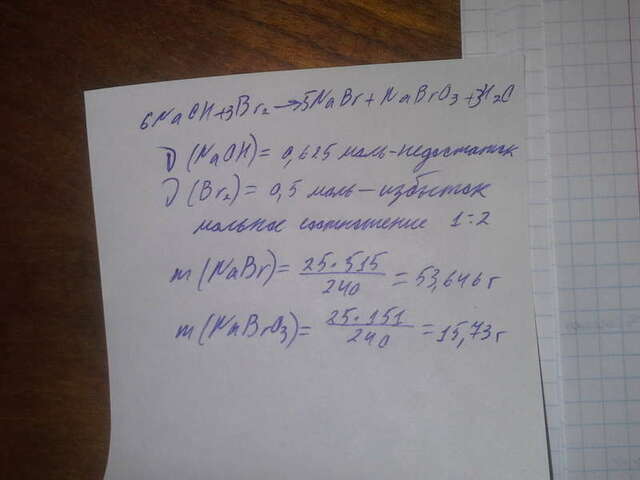 6NaOH+3Br₂→5NaBr+NaBrO₃+3H₂O
ν(NaOH)=0,625 моль-недостаток
ν(Br₂)=0,5 моль-избыток
мольное соотношение 1:2
m(NaBr)= 25·515/240 =53,646г
m(NaBrO₃)= 25·151/240 =15,73г